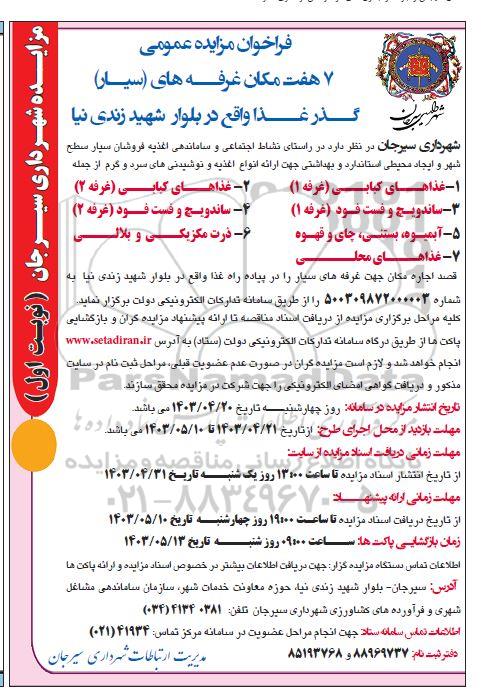 مزایـــده شهــرداری سیــرجان (نوبت اول)
فراخوان مزایده عمومی
۷ هفت مکان غرفــه های (سیــار)
گــذر غــذا واقع در بلوار شهید زندی نیا
شهرداری سیرجان در نظر دارد در راستای نشاط اجتماعی و ساماندهی اغذیه فروشان سیار سطح
شهر و ایجاد محیطی استاندارد و بهداشتی جهت ارائه انواع اغذیه و نوشیدنی های سرد و گرم از جمله
۱-غذاهــــای کبابـــی (غرفه ۱) ۲-غذاهــــای کبابـــی (غرفه ۲)
۳-ساندویچ و فست فـود (غرفه ۱) ۴- ساندویچ و فست فـود (غرفه ۲)
۵- آبمیــوه، بستنــی، چای و قهــوه ۶- ذرت مکزیکـــی و بلالـــی
۷-غذاهـــای محلـــی
قصد اجاره مکان جهت غرفه های سیار را در پیاده راه غذا واقع در بلوار شهید زندی نیا به
شماره ۵۰۰۳۰۹۸۷۲۰۰۰۰۰۳ را از طریق سامانه تدارکات الکترونیکی دولت برگزار نماید.
کلیه مراحل برگزاری مزایده از دریافت اسناد مناقصه تا ارائه پیشنهاد مزایده گران و بازگشایی
پاکت ها از طریق درگاه سامانه تدارکات الکترونیکی دولت (ستاد) به آدرس www.setadiran.ir
انجام خواهد شد و لازم است مزایده گران در صورت عدم عضویت قبلی، مراحل ثبت نام در سایت
مذکور و دریافت گواهی امضای الکترونیکی را جهت شرکت در مزایده محقق سازند
تاریخ انتشار مزایده در سامانه: روز چهارشنبـــه تاریخ ۱۴۰۳/۰۴/۲۰ می باشد.
مهلت بازدید از محل اجرای طرح: از تاریخ ۱۴۰۳/۰۴/۲۱ تا ۱۴۰۳/۰۵/۱۰ می باشد.
مهلت زمانی دریافت اسناد مزایده از سایت:
از تاریخ انتشار اسناد مزایده تا ساعت ۱۳:۰۰ روز یک شنبـــه تاریـــخ ۱۴۰۳/۰۴/۳۱
مهلت زمانی ارائه پیشنهــــاد:
از تاریخ دریافت اسناد مزایده تا ساعــت ۱۹:۰۰ روز چهارشنبـــه تاریخ ۱۴۰۳/۰۵/۱۰
زمان بازگشایـی پاکت ها: ســـاعت ۰۹:۰۰ روز شنبـــه تاریخ ۱۴۰۳/۰۵/۱۳
اطلاعات تماس دستگاه مزایده گزار: جهت دریافت اطلاعات بیشتر در خصوص اسناد مزایده و ارائه پاکت ها
آدرس: سیرجان- بلوار شهید زندی نیا، حوزه معاونت خدمات شهر، سازمان ساماندهی مشاغل
شهری و فرآورده های کشاورزی شهرداری سیرجان تلفن: ۰۳۸۱ ۴۱۳۴ (۰۳۴)
اطلاعات تماس سامانه ستاد: جهت انجام مراحل عضویت در سامانه مرکز تماس: ۴۱۹۳۴ (۰۲۱)
دفتر ثبت نام: ۸۸۹۶۹۷۳۷ و ۸۵۱۹۳۷۶۸
مدیریت ارتباطات شهرداری سیرجان